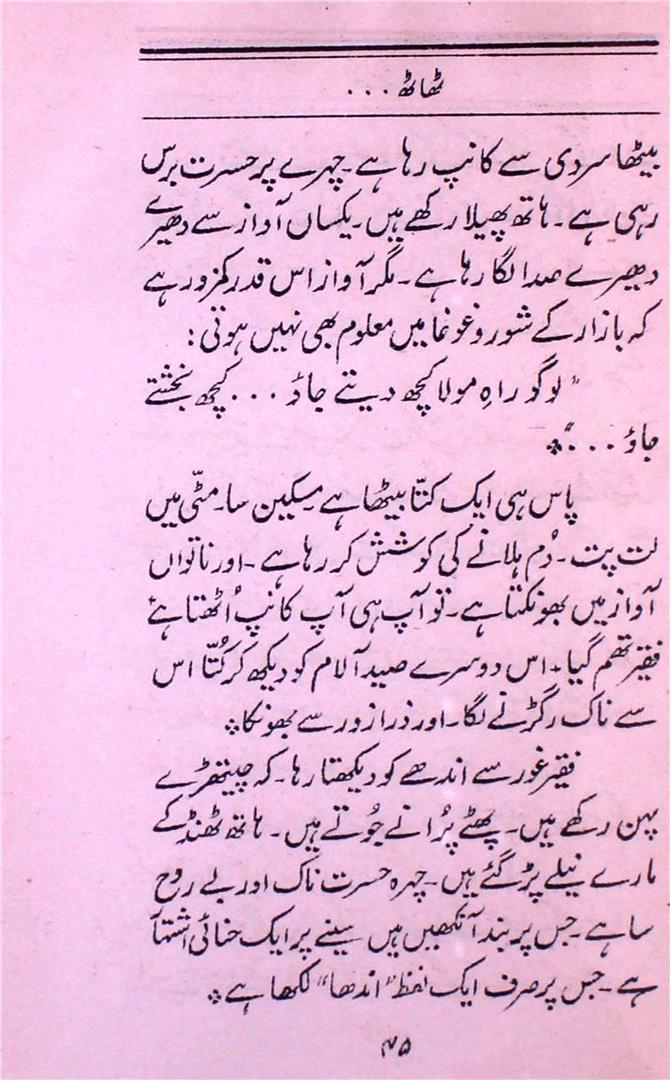 ٹھاٹھ ...
بیٹھا سردی سے کانپ رہا ہے۔ چہرے پر حسرت برس
رہی ہے۔ ہاتھ پھیلا رکھے ہیں۔ یکساں آواز سے دھیرے
دھیرے صدا لگا رہا ہے۔ مگر آواز اس قدر کمزور ہے
کہ بازار کے شور و غوغا میں معلوم بھی نہیں ہوتی:
"لوگو راہِ مولا کچھ دیتے جاؤ ... کچھ بخشتے
جاؤ ..."٭
پاس ہی ایک کتّا بیٹھا ہے مسکین سا۔ مٹّی میں
لت پت۔ دُم ہلانے کی کوشش کر رہا ہے۔ اور ناتواں
آواز میں بھونکتا ہے۔ تو آپ ہی آپ کانپ اُٹھتا ہے
فقیر تھم گیا۔ اس دوسرے صیدِ آلام کو دیکھ کر کُتّا اس
سے ناک رگڑنے لگا۔ اور ذرا زور سے بھونکا٭
فقیر غور سے اندھے کو دیکھتا رہا۔ کہ چیتھڑے
پہن رکھے ہیں۔ پھٹے پُرانے جُوتے ہیں۔ ہاتھ ٹھنڈ کے
مارے نیلے پڑ گئے ہیں۔ چہرہ حسرت ناک اور بے روح
سا ہے۔ جس پر بند آنکھیں ہیں سینے پر ایک حنائی اشتہار
ہے۔ جس پر صرف ایک لفظ "اندھا" لکھا ہے٭
۴۵